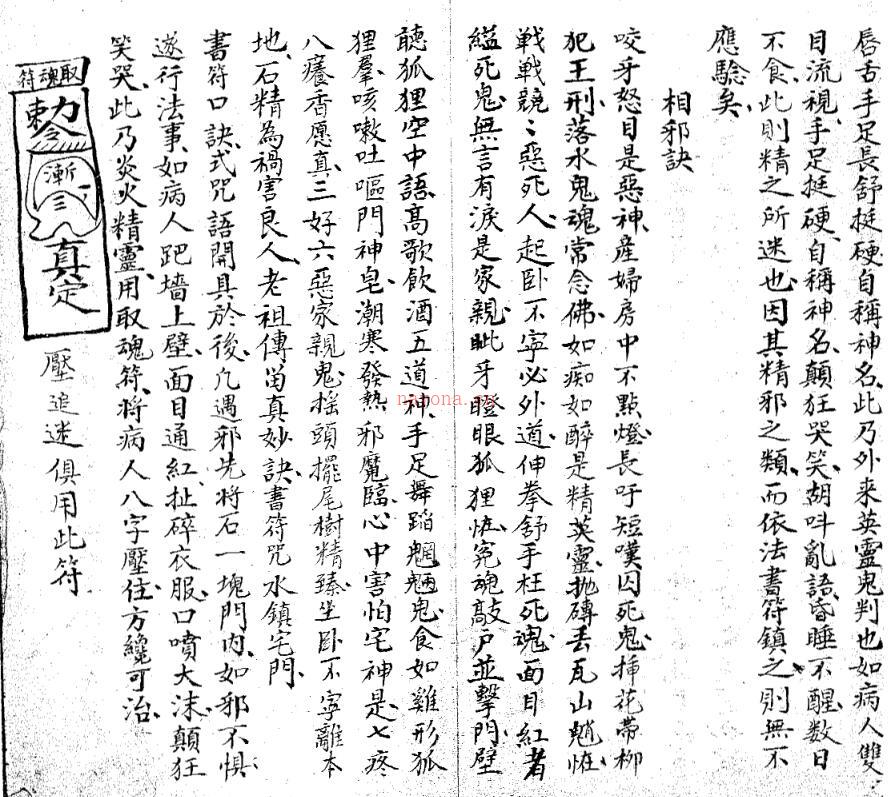 唇舌手足長舒挺硬自稱神名此乃外来英靈鬼判也如病人雙
目流視手足挺硬自稱神名顛狂哭笑胡呌亂語昏睡不醒数日
不食此則精之所迷也因其精邪之類而依法書符鎮之則無不
應驗矣
相邪訣
咬牙怒目是惡神產婦房中不點燈長吁短嘆囚死鬼揷花帶柳
犯王刑落水鬼魂常念佛如痴如醉是精英靈抛磚丟瓦山魈恠
戦戦競〻惡死人起卧不寧必外道伸拳舒手枉死魂面目紅者
縊死鬼無言有淚是家親眦牙瞪眼狐狸恠冤魂敲戸並擊門壁
聴狐狸空中語高歌飲酒五道神手足舞蹈魍魎鬼食如雞形狐
狸羣咳嗽吐嘔門神皂潮寒發熱邪魔臨心中害怕宅神是七疼
八癢香愿真三好六惡家親鬼搖頭擺尾樹精臻坐卧不寜離本
地石精為禍害良人老祖傳畄真妙訣書符咒水鎮宅門
書符口訣式咒語開具於後凢遇邪先将石一塊門内如邪不惧
遂行法事如病人跁墻上壁面目通紅扯碎衣服口噴大沫顛狂
笑哭此乃炎火精靈用取魂符将病人八字壓住方纔可治
取魂符
勅
漸
真定
壓追迷俱用此符
narona.su